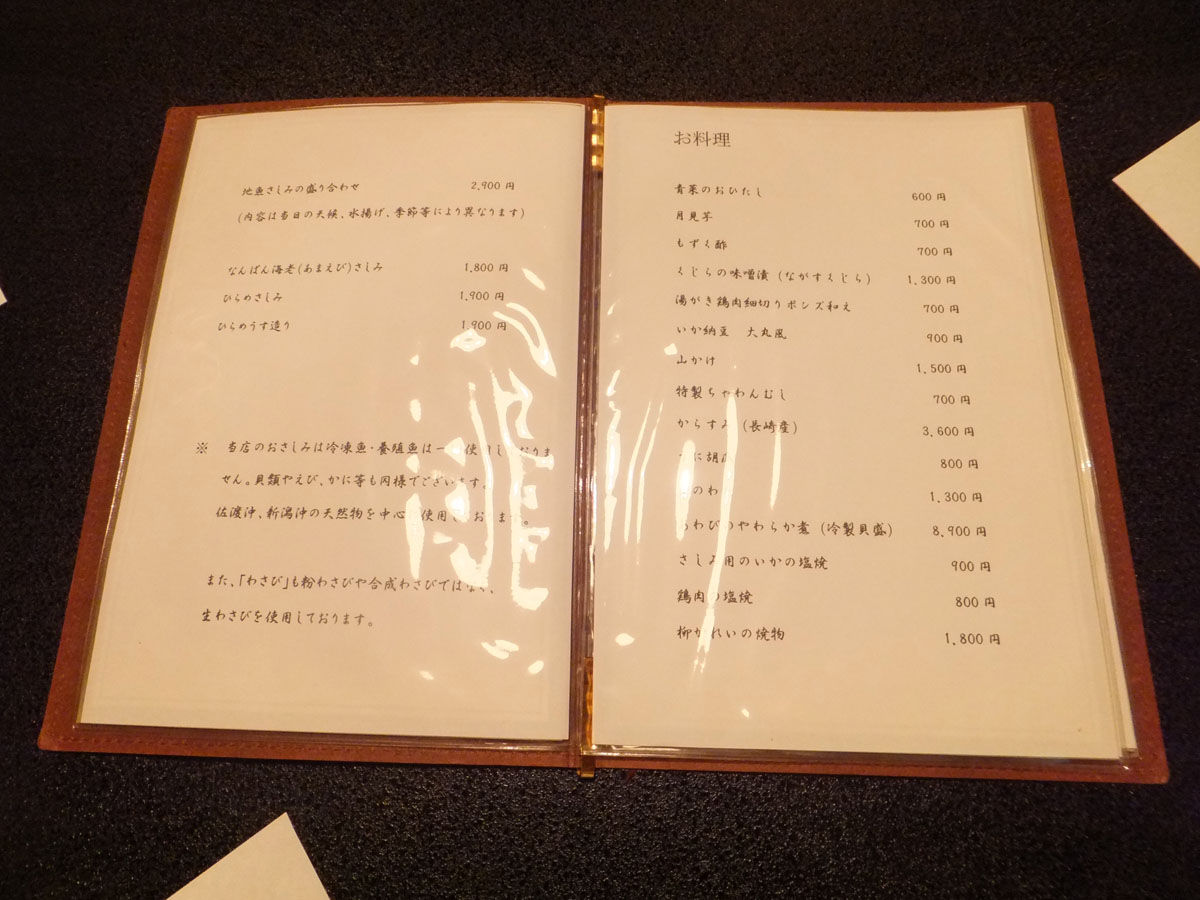 地魚さしみの盛り合わせ 2,900 円
(内容は当日の天候、水揚げ、季節等により異なります)
なんばん海老(あまえび)さしみ 1,800 円
ひらめさしみ 1,900 円
ひらめうす造り 1,900 円
※ 当店のおさしみは冷凍魚・養殖魚は一 使用しておりま
せん。貝類やえび、かに等も同様でございます。
佐渡沖、新潟沖の天然物を中心 使用しております。
また、「わさび」も粉わさびや合成わさびではなく、
生わさびを使用しております。
お料理
青菜のおひたし 600 円
月見芋 700 円
もずく酢 700 円
くじらの味噌漬 (ながすくじら) 1,300 円
湯がき鶏肉細切りポンズ和え 700 円
いか納豆 大丸風 900 円
山かけ 1,500 円
特製ちゃわんむし 700 円
からすみ (長崎産) 3,600 円
に胡 800 円
のわ 1,300 円
あわびのやわらか煮 (冷製貝盛) 8,900 円
さしみ用のいかの塩焼 900 円
鶏肉の塩焼 800 円
柳がれいの焼物 1,800 円